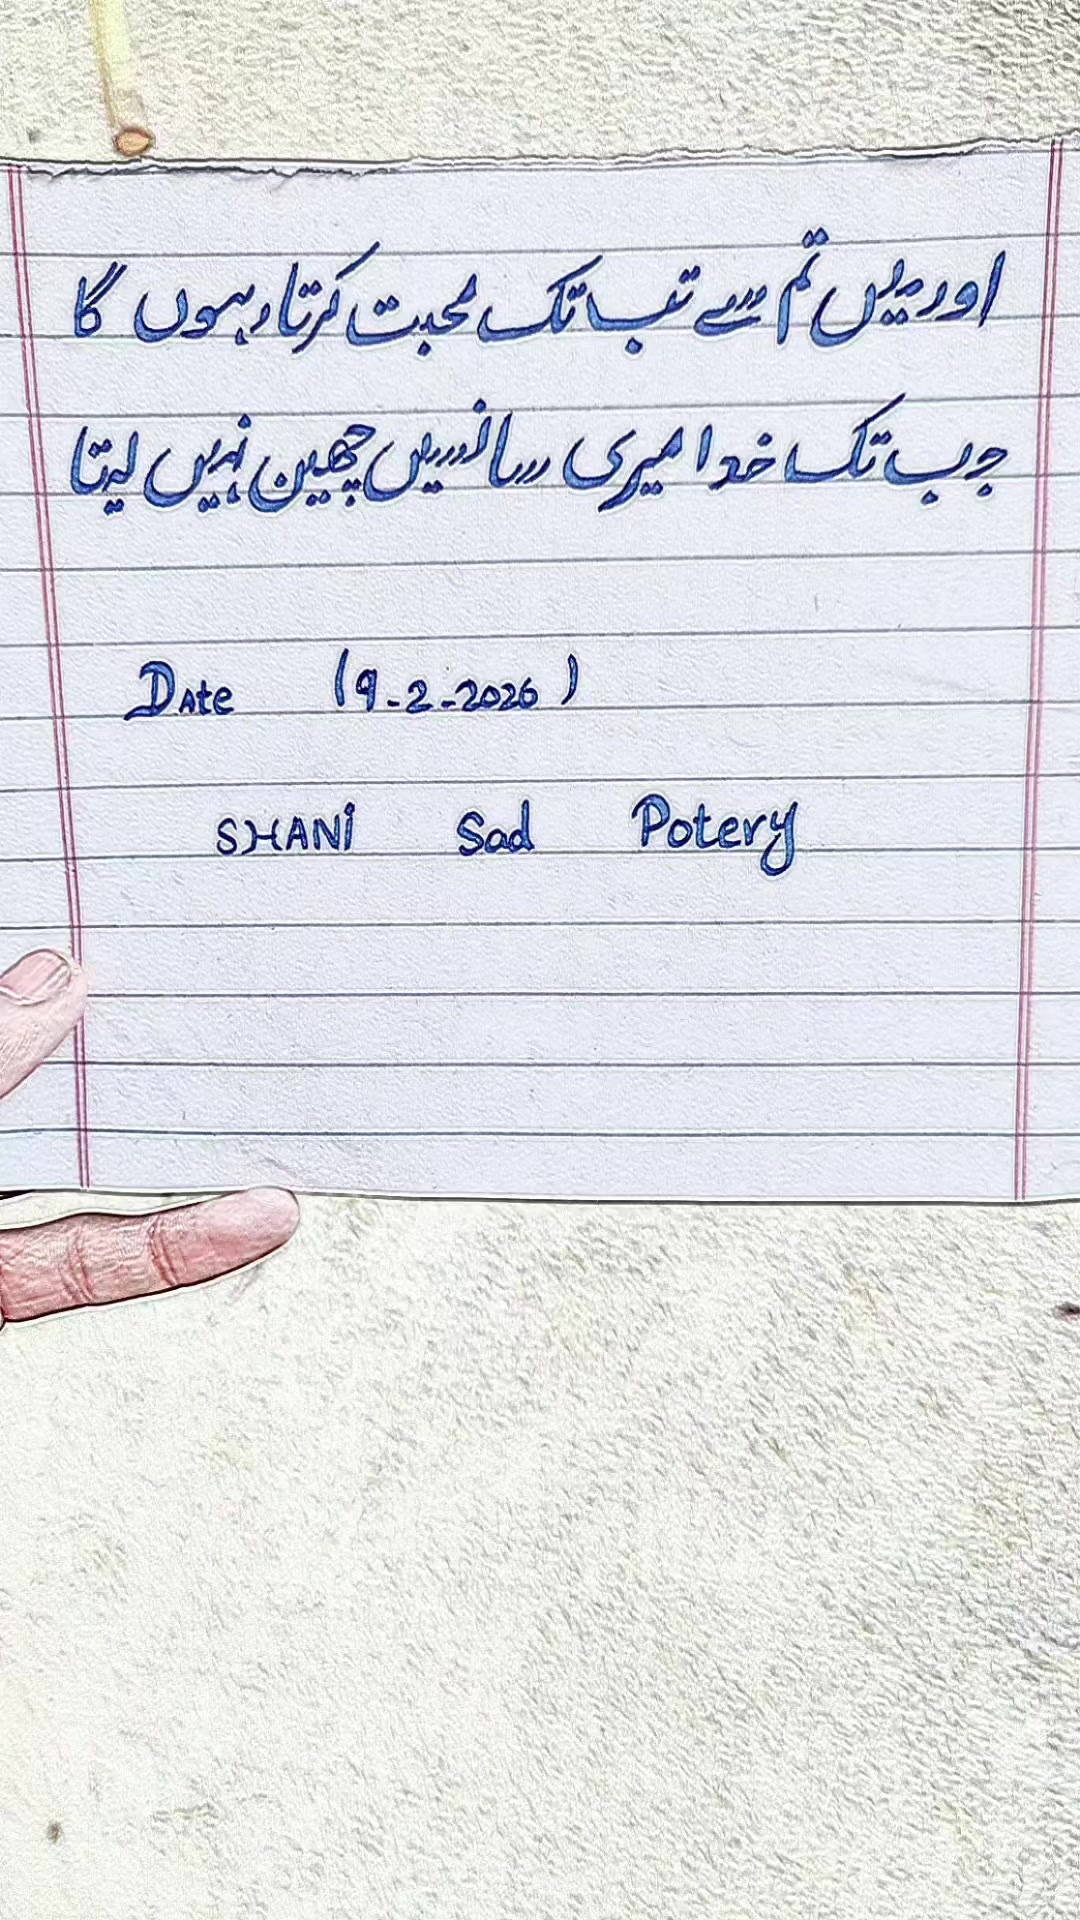 اور میں تم سے تب تک محبت کرتا رہوں گا
جب تک خدا میری سانسیں چھین نہیں لیتا
Date (9-2-2026)
SHANi Sad Potery